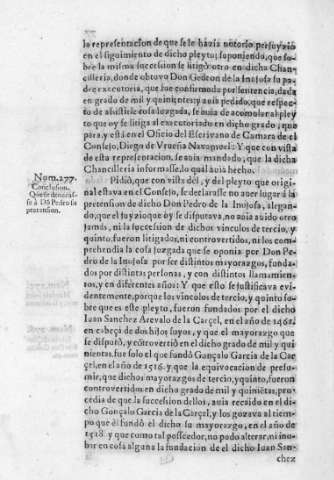 la representacion de que se le havia notorio perjuyzio
en el siguimiento de dicho pleyto; suponiendo, que so-
bre la misma succession se litigò otro en dicha Chan-
cilleria, donde obtuvo Don Gedeon de la Inojosa su pa-
dre executoria, que fue confirmada por sentencia, dada
en grado de mil y quinientas; y avia pedido, que respec-
to de assistirle cosa Iuzgada, se avia de acomoler al pley
to que oy se litiga al executoriado en dicho grado, que
para, y està en el Oficio del Escrivano de Camara de el
Consejo, Diego de Vrueña Navamuel: Y que con vista
de esta representacion, se avia mandado, que la dicha
Chancilleria informasse, lo qual avia hecho.
Num. 277.
Conclusion.
Que se denegas-
se à Dõ Pedro su
pretension.
Pidiò, que con vista del, y del pleyto que origi-
nal estava en el Consejo, se declarasse no aver lugar à la
pretension de dicho Don Pedro de la Inojosa, alegan-
do, que el juyzio que oy se disputava, no avia avido otro
jamàs, ni la succession de dichos vinculos de tercio, y
quinto, fueron litigados, ni controvertidos, ni los com-
prehendia la cosa juzgada que se oponia por Don Pe-
dro de la Inojosa por ser distintos mayorazgos, funda-
dos por distintas personas, y con distintos llamamien-
tos, y en diferentes años: Y que esto se justificava evi-
dentemente, porque los vinculos de tercio, y quinto so-
bre que es este pleyto, fueron fundados por el dicho
Iuan Sanchez Arevalo de la Carçel, en el año de 1462.
en cabeça de dos hijos suyos, y que el mayorazgo que
se disputò, y cõtrovertiò en el dicho grado de mil y qui
nientas, fue solo el que fundò Gonçalo Garcia de la Car
çel, en el año de 1516. y que la equivocacion de presu-
mir, que dichos mayorazgos de tercio, y quinto, fueron
controvertidos en dicho grado de mil y quiniẽtas, pro-
cedia de que la succession dellos, avia recaìdo en el di-
cho Gonçalo Garcia de la Carçel, y los gozava al tiem-
po que èl fundò el dicho su mayorazgo, en el año de
1528. y que como tal posseedor, no podia alterar, ni ino-
bar en cosa alguna la fundacion de el dicho Iuan San-
chez